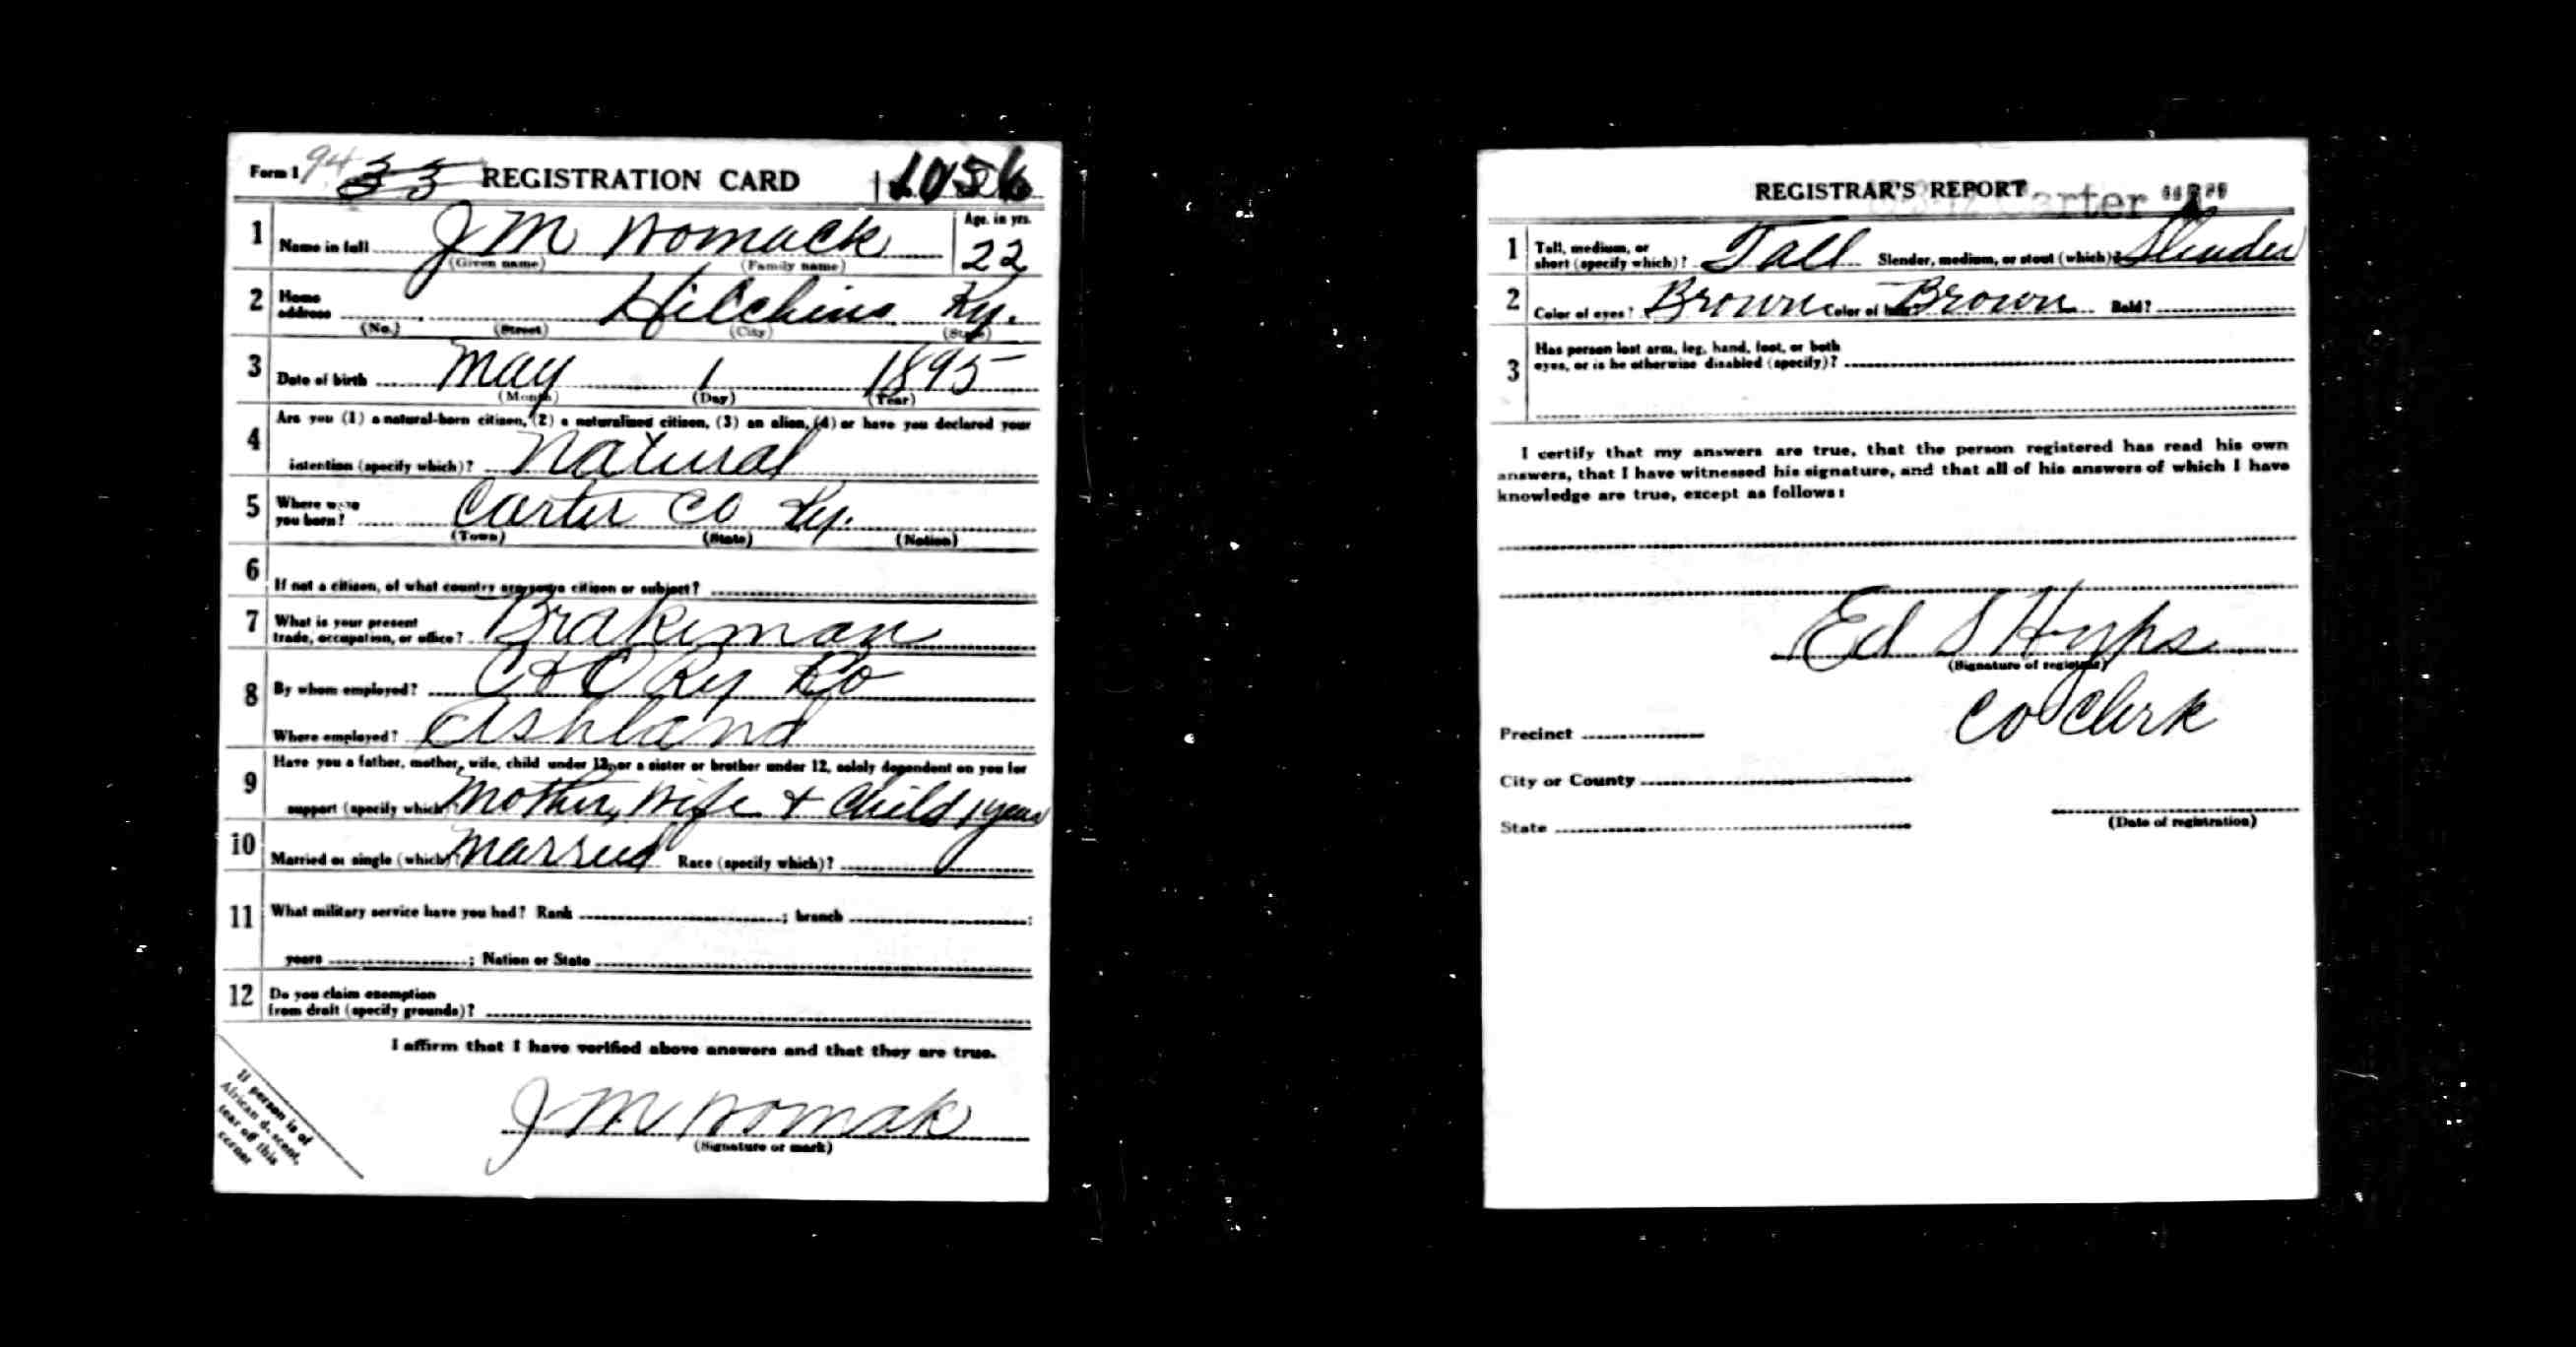 Form 1 94 33 REGISTRATION CARD 1056
1 Name in full J M Womack Age, in yrs. 22
(Given name) (Family name)
2 Home address Hitchins Ky.
(No.) (Street) (City) (State)
3 Date of birth May 1 1895
(Month) (Day) (Year)
4 Are you (1) a natural-born citizen, (2) a naturalized citizen, (3) an alien, (4) or have you declared your
intention (specify which)? Natural
5 Where were you born? Carter Co Ky.
(Town) (State) (Nation)
6 If not a citizen, of what country are you a citizen or subject?
7 What is your present trade, occupation, or office? Brakeman
8 By whom employed? C & O Ry Co
Where employed? Ashland
9 Have you a father, mother, wife, child under 12, or a sister or brother under 12, solely dependent on you for
support (specify which)? Mother, Wife & Child 1 year
10 Married or single (which)? Married Race (specify which)?
11 What military service have you had? Rank ; branch ;
years ; Nation or State
12 Do you claim exemption from draft (specify grounds)?
I affirm that I have verified above answers and that they are true.
J M Womak
(Signature or mark)
If person is of
African descent,
tear off this
corner
REGISTRAR'S REPORT Carter
1 Tall, medium, or short (specify which)? Tall Slender, medium, or stout (which)? Slender
2 Color of eyes? Brown Color of hair? Brown Bald?
3 Has person lost arm, leg, hand, foot, or both
eyes, or is he otherwise disabled (specify)?
I certify that my answers are true, that the person registered has read his own
answers, that I have witnessed his signature, and that all of his answers of which I have
knowledge are true, except as follows:
Ed S Hyps
(Signature of registrar)
Co Clerk
Precinct
City or County
State
(Date of registration)